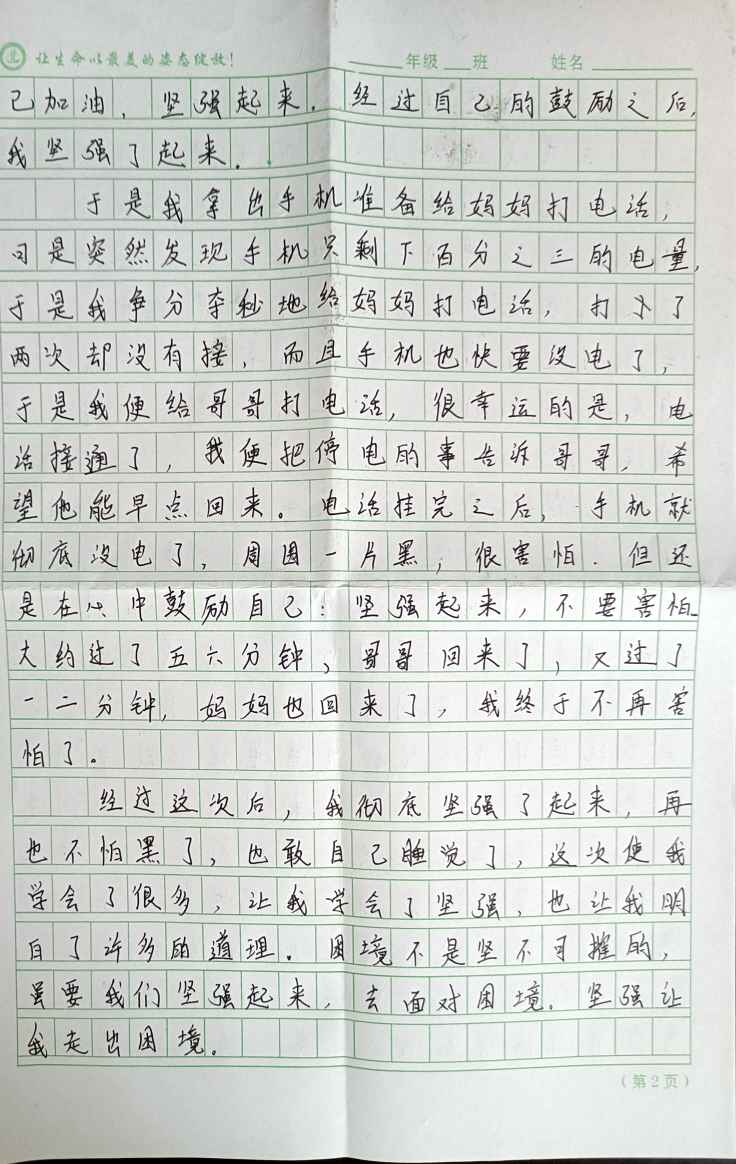 让生命以最美的姿态绽放!
年级 班 姓名
己加油，坚强起来．经过自己的鼓励之后，
我坚强了起来．
于是我拿出手机准备给妈妈打电话，
可是突然发现手机只剩下百分之三的电量，
于是我争分夺秒地给妈妈打电话，打了
两次却没有接，而且手机也快要没电了，
于是我便给哥哥打电话，很幸运的是，电
话接通了，我便把停电的事告诉哥哥，希
望他能早点回来。电话挂完之后，手机就
彻底没电了，周围一片黑，很害怕．但还
是在心中鼓励自己：坚强起来，不要害怕．
大约过了五六分钟，哥哥回来了，又过了
一二分钟，妈妈也回来了，我终于不再害
怕了。
经过这次后，我彻底坚强了起来，再
也不怕黑了，也敢自己睡觉了，这次使我
学会了很多，让我学会了坚强，也让我明
白了许多的道理．困境不是坚不可摧的，
要我们坚强起来，去面对困境．坚强让
我走出困境。
（第2页）